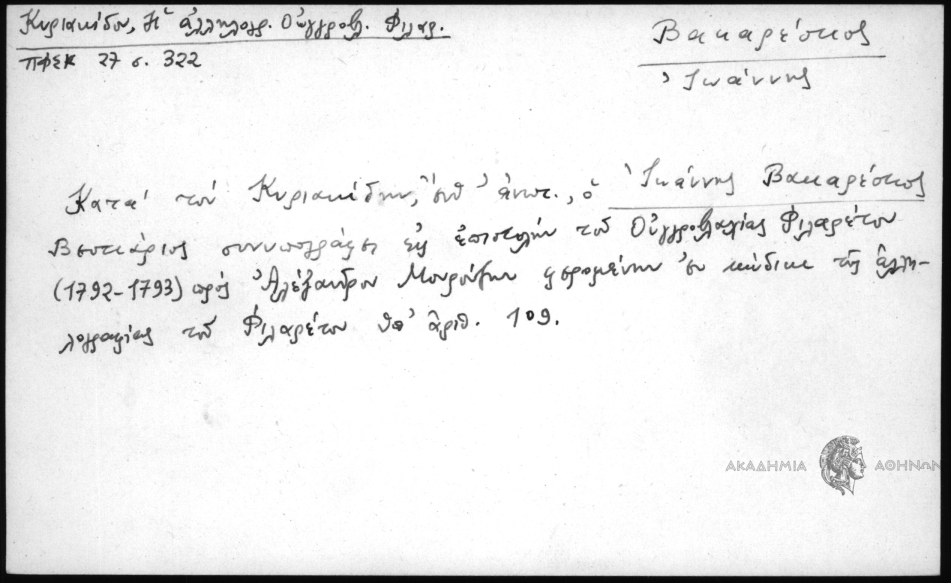 Κυριακίδου, Ἡ ἀλληλογρ. Οὑγγροβλ. Φιλαρ.
ΠΦΣΚ 27 σ. 322
Βακαρέσκος
Ἰωάννης
Κατά τόν Κυριακίδην, ἔνθ' ἀνωτ., ὁ Ἰωάννης Βακαρέσκος
Βεστιάριος συνυπογράφει εἰς ἐπιστολήν τοῦ Οὑγγροβλαχίας Φιλαρέτου
(1792-1793) πρός Ἀλέξανδρον Μουρούζην φερομένην ἐν κώδικι τῆς ἀλλη-
λογραφίας τοῦ Φιλαρέτου ὑπ' ἀριθ. 109.
ΑΚΑΔΗΜΙΑ ΑΘΗΝΩΝ